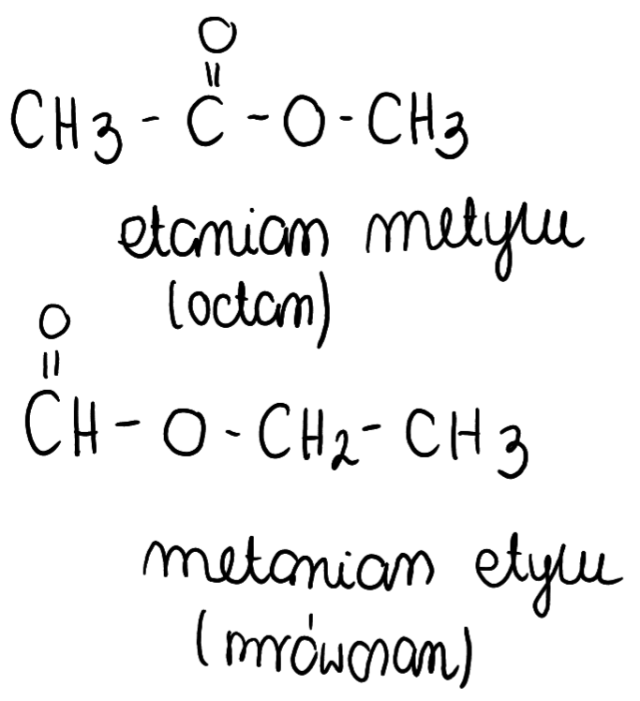 O
||
CH3 - C - O - CH3
etanian metylu
(octan)
O
||
CH - O - CH2 - CH3
metanian etylu
(mrówczan)